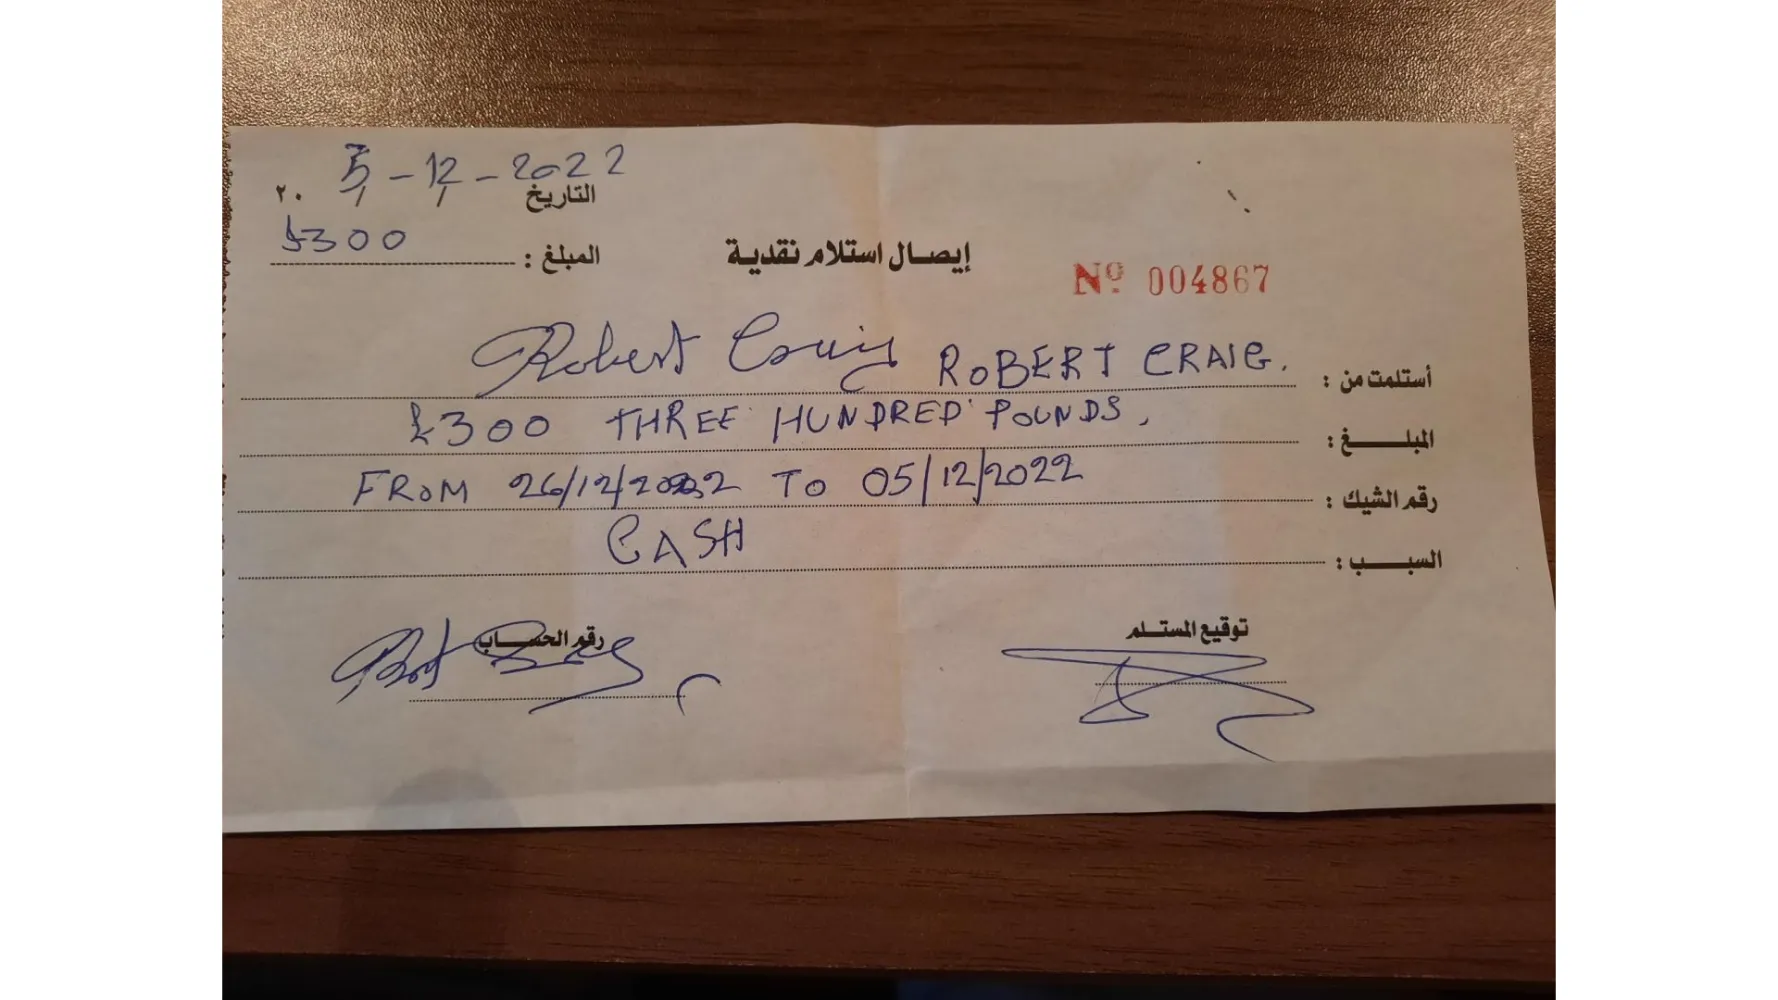 5-12-2022
التاريخ / / ٢٠
£300
المبلغ :
إيصال استلام نقدية
Nº 004867
أستلمت من : Robert Craig ROBERT CRAIG.
المبلغ : £300 THREE HUNDRED POUNDS,
رقم الشيك : FROM 26/12/2022 TO 05/12/2022
السبب : CASH
توقيع المستلم
رقم الحساب